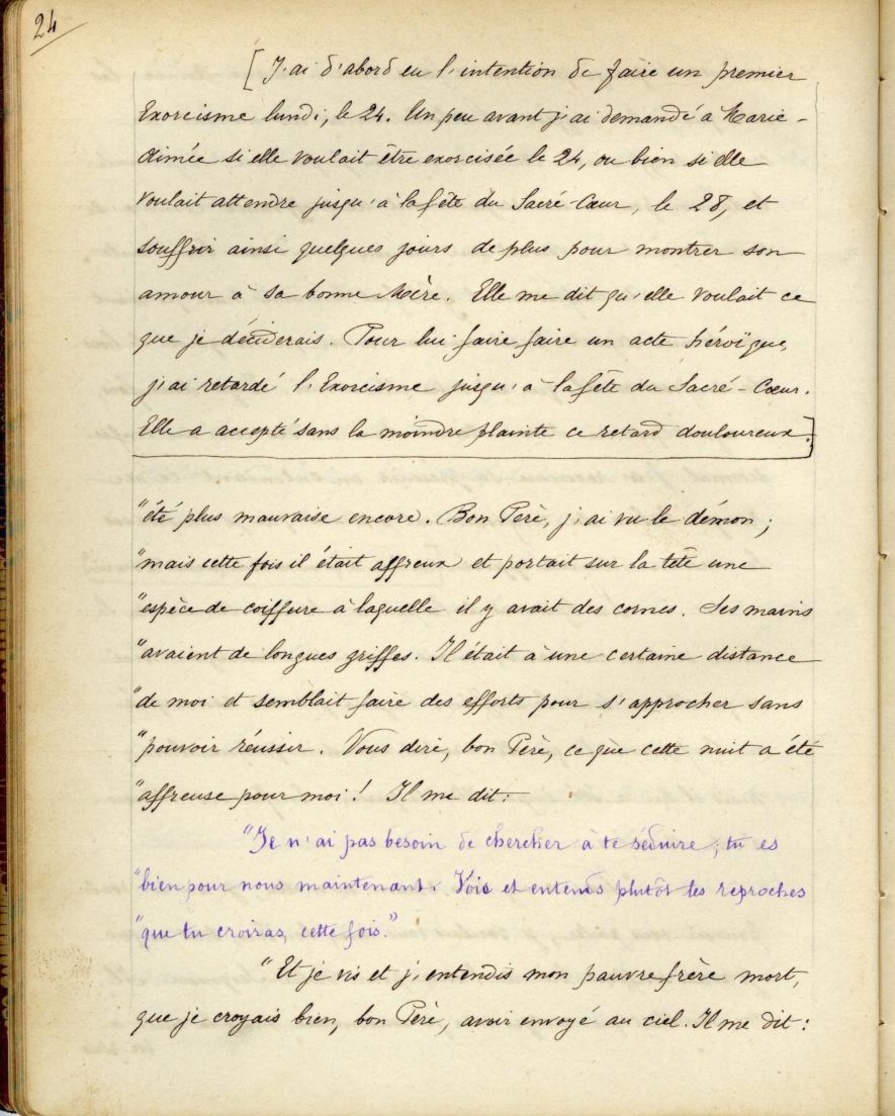 24
[J'ai d'abord eu l'intention de faire un premier
Exorcisme lundi, le 24. Un peu avant j'ai demandé à Marie-
Aimée si elle voulait être exorcisée le 24, ou bien si elle
voulait attendre jusqu'à la fête du Sacré-Cœur, le 28, et
souffrir ainsi quelques jours de plus pour montrer son
amour à sa bonne Mère. Elle me dit qu'elle voulait ce
que je déciderais. Pour lui faire faire un acte héroïque,
j'ai retardé l'Exorcisme jusqu'à la fête du Sacré-Cœur.
Elle a accepté sans la moindre plainte ce retard douloureux.]
"été plus mauvaise encore. Bon Père, j'ai vu le démon ;
"mais cette fois il était affreux et portait sur la tête une
"espèce de coiffure à laquelle il y avait des cornes. Ses mains
"avaient de longues griffes. Il était à une certaine distance
"de moi et semblait faire des efforts pour s'approcher sans
"pouvoir réussir. Vous dire, bon Père, ce que cette nuit a été
"affreuse pour moi ! Il me dit :
"Je n'ai pas besoin de chercher à te séduire ; tu es
"bien pour nous maintenant. Vois et entends plutôt les reproches
"que tu croiras, cette fois."
"Et je vis et j'entendis mon pauvre frère mort,
que je croyais bien, bon Père, avoir envoyé au ciel. Il me dit :